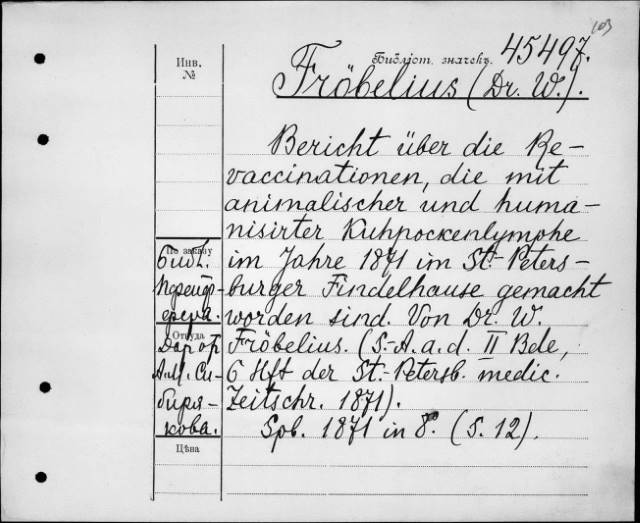 103
Инв.
№
Библіот. значекъ. 45497.
Fröbelius (Dr. W.).
Bericht über die Re-
vaccinationen, die mit
animalischer und huma-
nisirter Kuhpockenlymphe
im Jahre 1871 im St.-Peters-
burger Findelhause gemacht
worden sind. Von Dr. W.
Fröbelius. (S.-A. a. d. II Bde,
6 Hft der St.-Petersb. medic.
Zeitschr. 1871).
Spb. 1871 in 8º. (S. 12).
По заказу
Библ.
Пфейф-
фера.
Откуда
Дар от
А. М. Си-
биря-
кова.
Цѣна